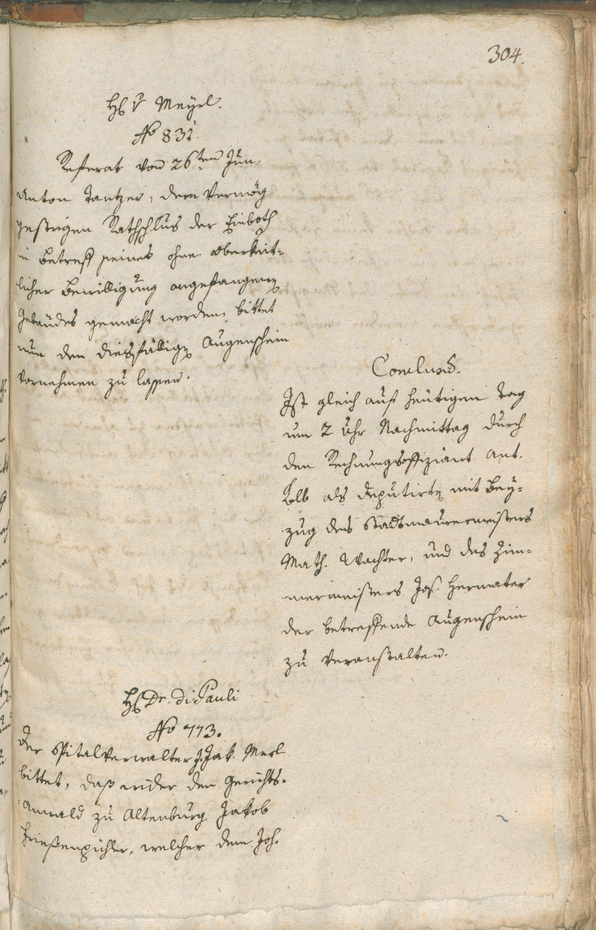 304.
H: v: Meyrl.
No 832.
Referat von 26ten Jun:
Anton Jantzer, dem vermög
gestrigen Rathschlus der Einboth
in betreff seines ohne oberkeit-
licher Bewilligung angefangenen
Gebäudes gemacht worden, bittet
nun den diesfälligen Augenschein
vornehmen zu lassen.
Conclusum.
Ist gleich auf heutigen Tag
um 2 Uhr Nachmittag durch
den Rechnungsoffizianten Ant.
Kolb als deputirten mit Bey-
zug des Stadtmaurermeisters
Math. Wachter, und des Zim-
mermeisters Jos. Hermeter
der betreffende Augenschein
zu veranstalten.
H: Dr. di Pauli
No 773.
Der Spitalverwalter Jak. Merl
bittet, daß wider den Gerichts-
Anwald zu Altenburg Jakob
welcher dem Joh.